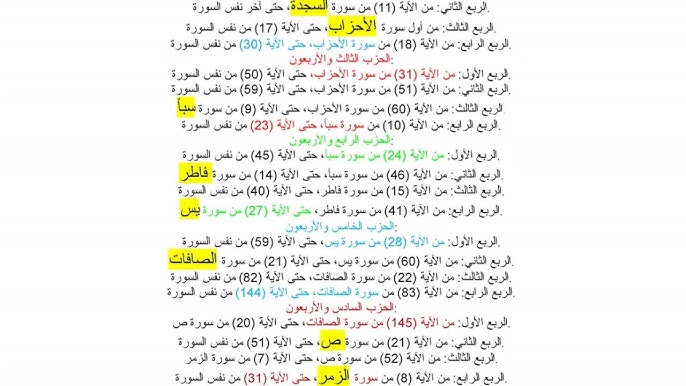 الربع الثاني: من الآية (11) من سورة السجدة، حتى آخر نفس السورة.
الربع الثالث: من أول سورة الأحزاب، حتى الآية (17) من نفس السورة.
الربع الرابع: من الآية (18) من سورة الأحزاب، حتى الآية (30) من نفس السورة.
الحزب الثالث والأربعون:
الربع الأول: من الآية (31) من سورة الأحزاب، حتى الآية (50) من نفس السورة.
الربع الثاني: من الآية (51) من سورة الأحزاب، حتى الآية (59) من نفس السورة.
الربع الثالث: من الآية (60) من سورة الأحزاب، حتى الآية (9) من سورة سبأ.
الربع الرابع: من الآية (10) من سورة سبأ، حتى الآية (23) من نفس السورة.
الحزب الرابع والأربعون:
الربع الأول: من الآية (24) من سورة سبأ، حتى الآية (45) من نفس السورة.
الربع الثاني: من الآية (46) من سورة سبأ، حتى الآية (14) من سورة فاطر.
الربع الثالث: من الآية (15) من سورة فاطر، حتى الآية (40) من نفس السورة.
الربع الرابع: من الآية (41) من سورة فاطر، حتى الآية (27) من سورة يس.
الحزب الخامس والأربعون:
الربع الأول: من الآية (28) من سورة يس، حتى الآية (59) من نفس السورة.
الربع الثاني: من الآية (60) من سورة يس، حتى الآية (21) من سورة الصافات.
الربع الثالث: من الآية (22) من سورة الصافات، حتى الآية (82) من نفس السورة.
الربع الرابع: من الآية (83) من سورة الصافات، حتى الآية (144) من نفس السورة.
الحزب السادس والأربعون:
الربع الأول: من الآية (145) من سورة الصافات، حتى الآية (20) من سورة ص.
الربع الثاني: من الآية (21) من سورة ص، حتى الآية (51) من نفس السورة.
الربع الثالث: من الآية (52) من سورة ص، حتى الآية (7) من سورة الزمر.
الربع الرابع: من الآية (8) من سورة الزمر، حتى الآية (31) من نفس السورة.